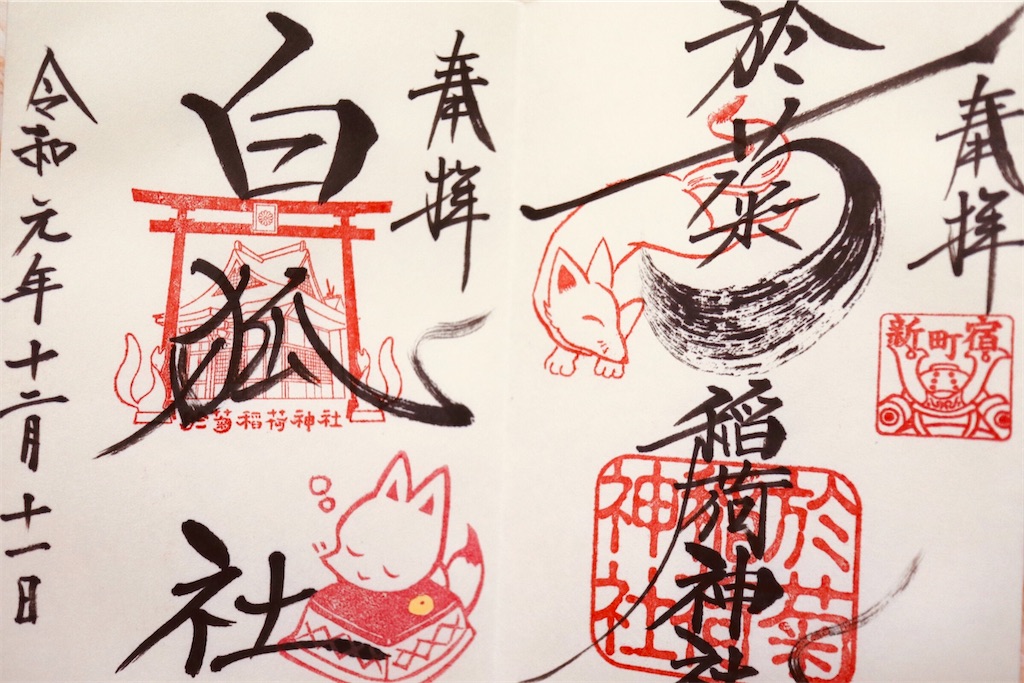 奉拝
於菊
稲荷神社
新町宿
於菊
稲荷
神社
奉拝
白狐社
於菊稲荷神社
令和元年十二月十一日